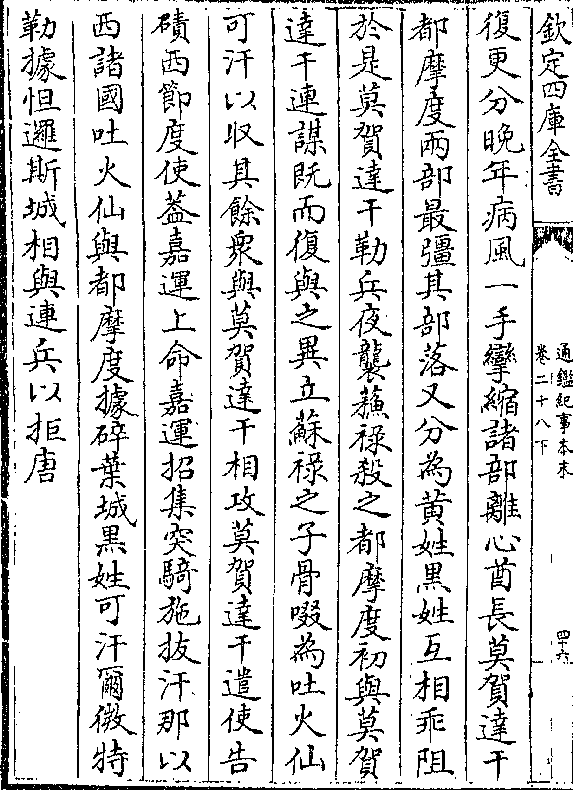 欽定四庫全書
通鑑紀事本末
卷二十八下
四十六
復更分晚年病風一手攣縮諸部離心酋長莫賀達干
都摩度兩部最彊其部落又分為黃姓黑姓互相乖阻
於是莫賀達干勒兵夜襲蘇祿殺之都摩度初與莫賀
達干連謀既而復與之異立蘇祿之子骨啜為吐火仙
可汗以收其餘衆與莫賀達干相攻莫賀達干遣使告
磧西節度使葢嘉運上命嘉運招集突騎施拔汗那以
西諸國吐火仙與都摩度據碎葉城黑姓可汗爾微特
勒據怛邏斯城相與連兵以拒唐